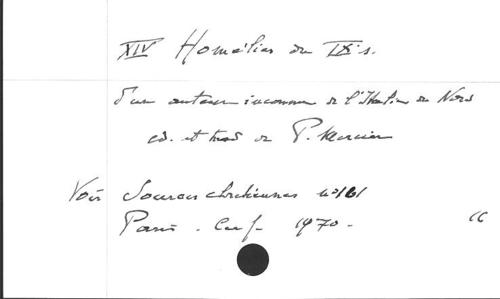 XIV Homélies du IXe s.
d'un auteur inconnu de l'Italie du Nord
éd. et trad de P. Mercier
Voir Sources chrétiennes n°161
Paris. Cerf. 1970.